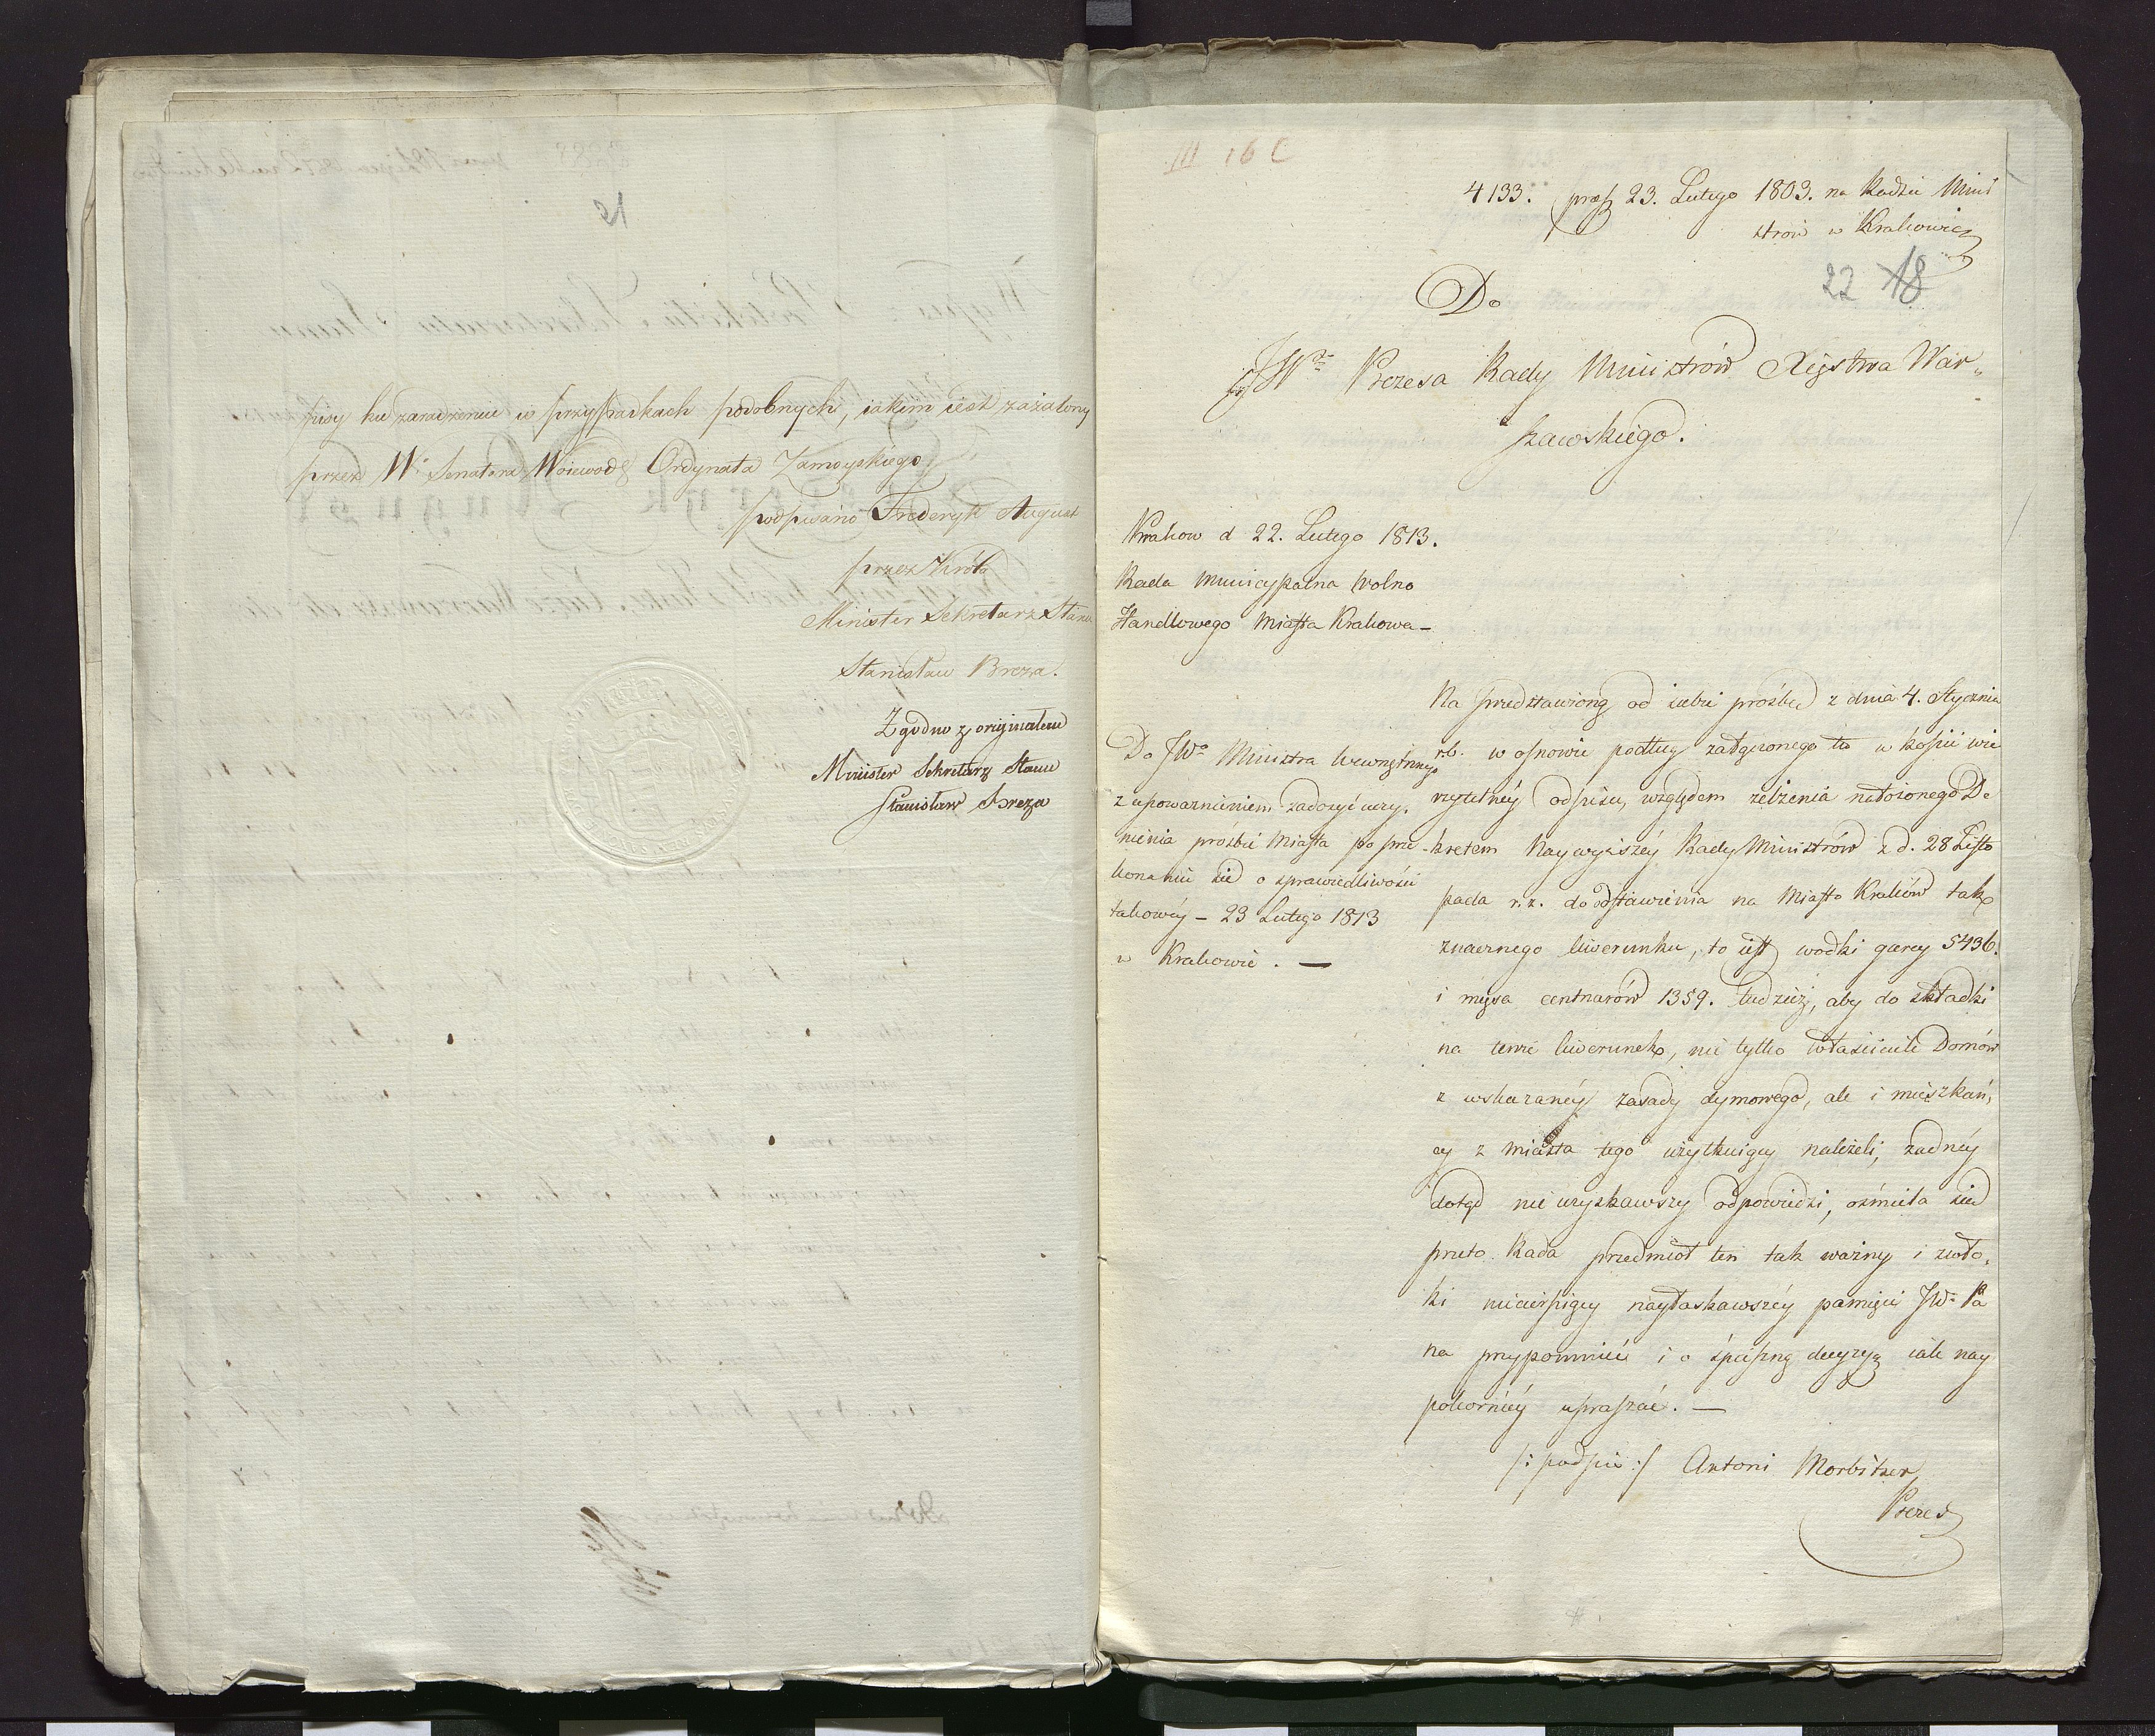 pisy ku zaradzeniu w przypadkach podobnych, iakim iest zażalony
przez W° Senatora Woiewodę Ordynata Zamoyskiego
podpisano Frederyk August
przez Króla
Minister Sekretarz Stanu
Stanisław Breza.
Zgodno z oryginałem
Minister Sekretarz Stanu
Stanisław Breza
III 16 C
4133. præs 23. Lutego 1803. na Radzie Mini
strow w Krakowie
22 18
Do
JW° Prezesa Rady Ministrów Xięstwa War„
szawskiego.
Krakow d 22. Lutego 1813.
Rada Municypalna Wolno
Handlowego Miasta Krakowa —
Do JW° Ministra Wewnętrznego
z upoważnieniem zadosyć uczy„
nienia prośbie Miasta po prze
konaniu się o sprawiedliwości
takowéy — 23 Lutego 1813
w Krakowie. —
Na przedstawioną od siebie prośbę z dnia 4. Stycznia
r.b. w osnowie podług załączonego tu w kopii wie
rzytelnéy odpisu, względem zelżenia nałożonego De
kretem Naywyższéy Rady Ministrów z d. 28 Listo
pada r.z. do odstawienia na Miasto Kraków tak
znacznego liwerunku, to iest wodki garcy 5436.
i mięsa centnarów 1359. tudzież, aby do składki
na tenże liwerunek, nie tylko właściciele Domów
z wskazanéy zasady dymowego, ale i mieszkań„
cy z miasta tego użytkuiący należeli, żadnéy
dotąd nie uzyskawszy odpowiedzi, ośmiela się
przeto Rada przedmiot ten tak ważny i zwło„
ki niecierpiący nayłaskawszéy pamięci JW° Pa
na przypomnieć i o śpieszną decyzyą iak nay
pokornićy upraszać. —
/: podpis :/ Antoni Morbitzer
Prezes